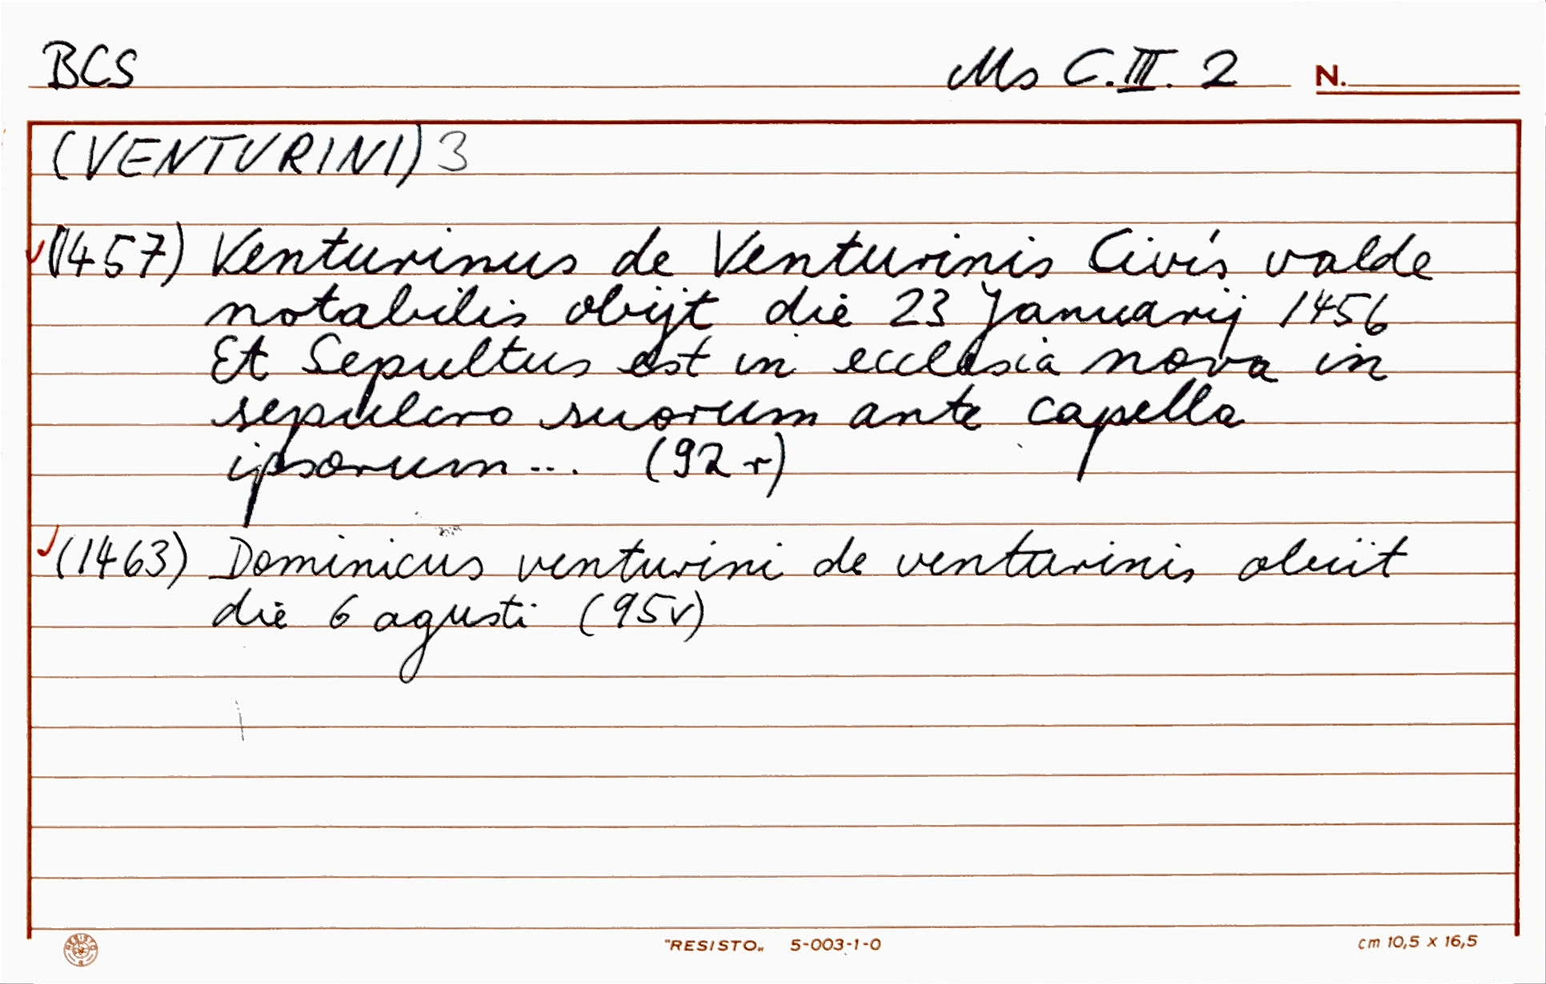 BCS Ms C.III. 2 N.
(VENTURINI) 3
(1457) Venturinus de Venturinis Civis valde
notabilis obijt die 23 Januarij 1456
Et Sepultus est in ecclesia nova in
sepulcro suorum ante capella
ipsorum... (92r)
(1463) Dominicus venturini de venturinis obiit
die 6 agusti (95v)
RESISTO "RESISTO„ 5-003-1-0 cm 10,5 x 16,5